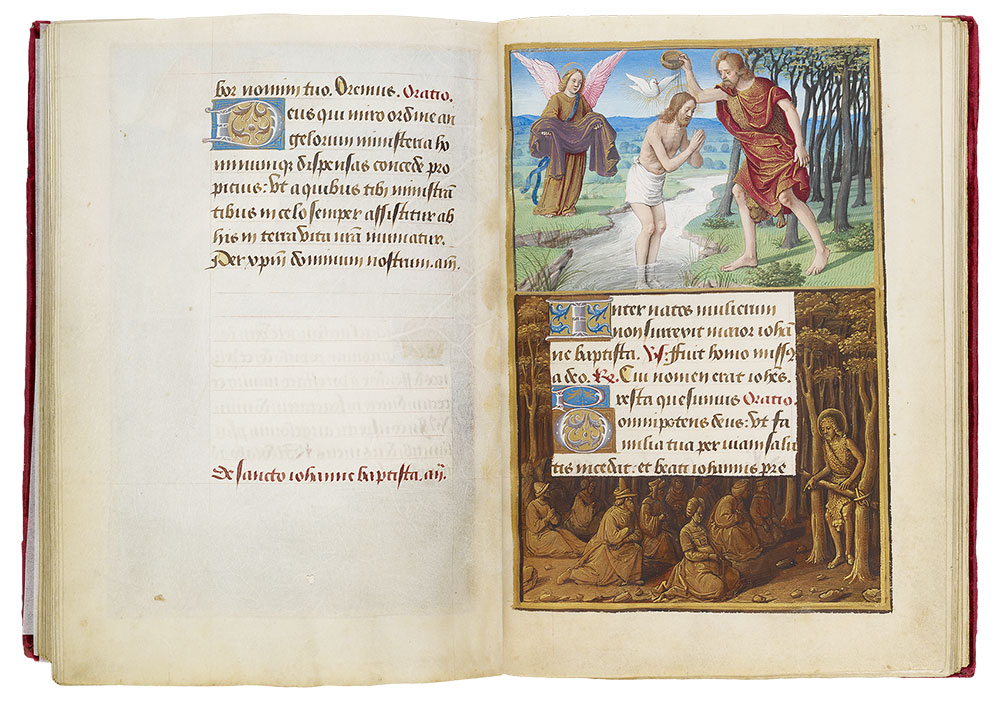 bor nomini tuo. Oremus. Oratio.
Deus qui miro ordine an
gelorum ministeria ho
minumq; dispensas concede pro
pitius: Ut a quibus tibi ministrã
tibus in celo semper assistitur ab
his in terra vita nrã muniatur.
Per xpm̃ dominum nostrum. am̃.
De sancto iohanne baptista. añ.
Inter natos mulierum
non surrexit maior iohã
ne baptista. Vs. Fuit homo missq
a deo. Rx. Cui nomen erat iohẽs.
Presta quesumus Oratio.
Omnipotens deus: Ut fa
milia tua per viam salu
tis incedit: et beati iohannis pre